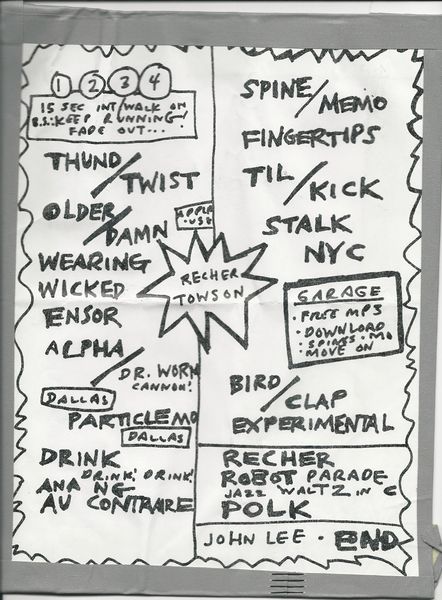 1 2 3 4
15 SEC INT/WALK ON
B.S: KEEP RUNNING!
FADE OUT...
THUND/
TWIST
OLDER/
DAMN
APPLE
USB
WEARING
WICKED
ENSOR
ALPHA/
DR. WORM
CANNON!
DALLAS
PARTICLE MO
DALLAS
DRINK
DRINK! DRINK!
ANA NG
AU CONTRAIRE
RECHER
TOWSON
SPINE/
MEMO
FINGERTIPS
TIL/
KICK
STALK
NYC
GARAGE
• FREE MP3
• DOWNLOAD
• SPIRES • MO
MOVE ON
BIRD/
CLAP
EXPERIMENTAL
RECHER
ROBOT PARADE
JAZZ WALTZ IN C
POLK
JOHN LEE • END